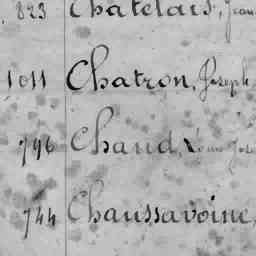 823 Chatelais, Jean
1011 Chatron, Joseph
796 Chaud,
744 Chaussavoine,